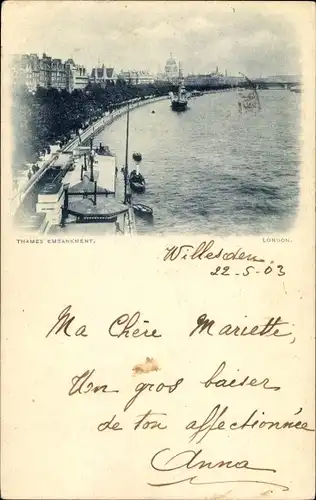 THAMES EMBANKMENT.
LONDON.
Willesden
22-5-03
Ma Chère Mariette,
Un gros baiser
de ton affectionnée
Anna